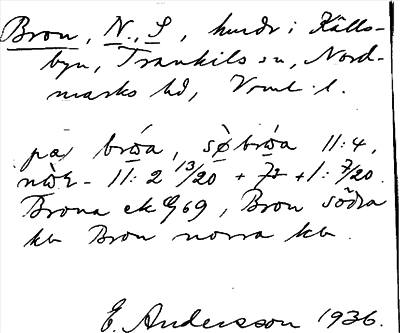 Bron, N., S, hmdr i Källs-
byn, Trankils sn, Nord-
marks hd, Vrml. l.
pa brωa, sø brωa 11:4,
11:2 13/20 + 77 + 1: 7/20.
Brona ek 69, Bron södra
kb Bron norra kb.
E. Andersson 1936.